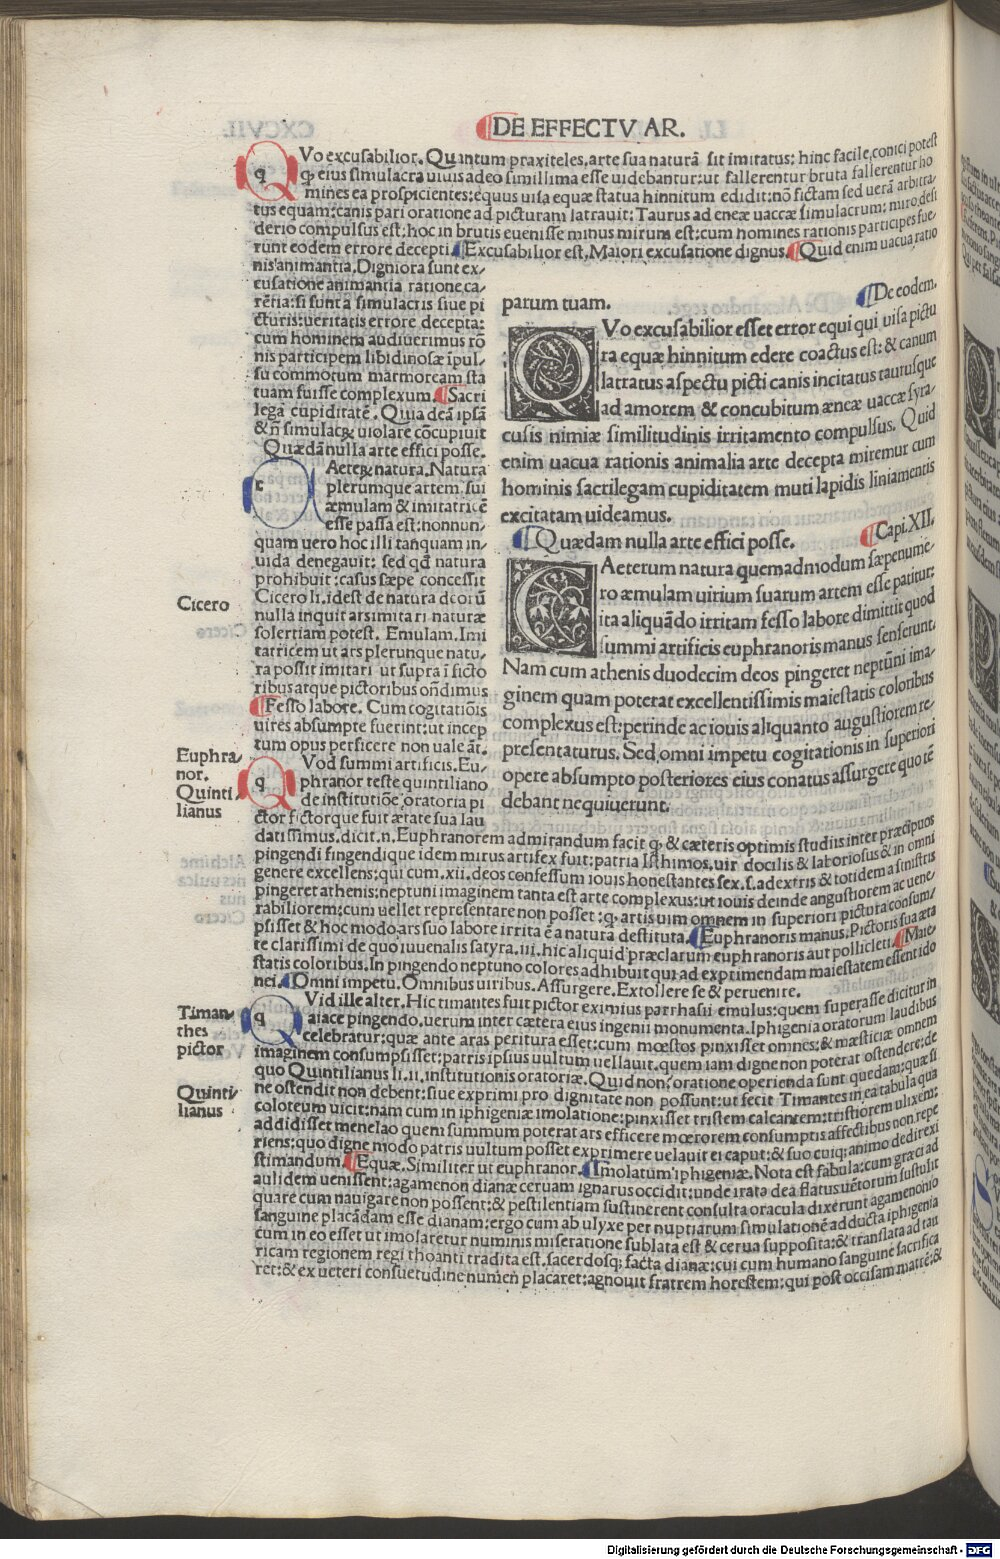 DE EFFECTV AR.
QVo excusabilior. Quantum praxiteles, arte sua naturã sit imitatus: hinc facile conici potest
ꝙ eius simulacra uiuis adeo simillima esse uidebantur: ut fallerentur bruta fallerentur ho
mines ea prospicientes: equus uisa equæ statua hinnitum edidit: nõ fictam sed uerã arbitra
tus equam: canis pari oratione ad picturam latrauit: Taurus ad eneæ uaccæ simulacrum: miro desi
derio compulsus est: hoc in brutis euenisse minus mirum est: cum homines rationis participes fue
runt eodem errore decepti. Excusabilior est. Maiori excusatione dignus. Quid enim uacua ratio
nis animantia. Digniora sunt ex/
cusatione animantia ratione ca/
rẽtia: si sunt a simulacris siue pi
cturis: ueritatis errore decepta:
cum hominem audiuerimus rõ
nis participem libidinosæ ĩpul/
su commotum marmoream sta
tuam fuisse complexum. Sacri
lega cupiditatẽ. Quia deã ipsã
& ñ simulacꝝ uiolare cõcupiuit
Quædã nulla arte effici posse.
cAeteꝝ natura. Natura
plerumque artem sui
æmulam & imitatricẽ
esse passa est: nonnun/
quam uero hoc illi tanquam in/
uida denegauit: sed qd natura
prohibuit: casus sæpe concessit
Cicero li. i. dest de natura deorũ
nulla inquit ars imitari naturæ
solertiam potest. Emulam. Imi
tatricem ut ars plerunque natu/
ra possit imitari ut supra ĩ ficto
ribus atque pictoribus oñdimus
Fesso labore. Cum cogitatiõis
uires absumpte fuerint: ut incep
tum opus perficere non uale ãt.
QVod summi artificis. Eu/
phranor teste quintiliano
de institutiõne oratoria pi
ctor fictorque fuit ætate sua lau
datissimus. dicit. n. Euphranorem admirandum facit ꝙ & cæteris optimis studiis inter præcipuos
pingendi fingendique idem mirus artifex fuit: patria Isthimos. uir docilis & laboriosus & in omni
genere excellens: qui cum. xii. deos confessum iouis honestantes sex. s. adextris & totidem a sinistris
pingeret athenis: neptuni imaginem tanta est arte complexus: ut iouis deinde angustiorem ac uene/
rabiliorem: cum uellet representare non posset: ꝙ artis uim omnem in superiori pictura consum/
psisset & hoc modo ars suo labore irrita ẽ a natura destituta. Euphranoris manus. Pictoris sua æta
te clarissimi de quo iuuenalis satyra. iii. hic aliquid præclarum euphranoris aut polliclett. Maie/
statis coloribus. In pingendo neptuno colores adhibuit qui ad exprimendam maiestatem essent ido
nei. Omni impetu. Omnibus uiribus. Assurgere. Extollere se & peruenire.
QVid ille alter. Hic timantes fuit pictor eximius parrhasii emulus: quem superasse dicitur in
aiace pingendo. uerum inter cætera eius ingenii monumenta. Iphigenia oratorum laudibus
celebratur: quæ ante aras peritura esset: cum mœstos pinxisset omnes: & mæsticiæ omnem
imaginem consumpsisset: patris ipsius uultum uellauit. quem iam digne non poterat ostendere: de
quo Quintilianus li. ii. institutionis oratoriæ. Quid non? oratione operienda sunt quedam: quæ si
ne ostendit non debent: siue exprimi pro dignitate non possunt: ut fecit Timantes in ea tabula qua
coloteum uicit: nam cum in iphigeniæ imolatione: pinxisset tristem calcantem: tristiorem ulixem:
addidisset menelao quem summum poterat ars efficere mœrorem consumptis affectibus non repe
riens: quo digne modo patris uultum posset exprimere uelauit ei caput: & suo cuiq; animo dedit exi
stimandum. Equæ. Similiter ut euphranor. Imolatum iphigeniæ. Nota est fabula: cum græci ad
aulidem uenissent: agamenon dianæ ceruam ignarus occidit: unde irata dea flatus uẽtorum sustulit
quare cum nauigare non possent: & pestilentiam sustinerent consulta oracula dixerunt agamenonio
sanguine placãdam esse dianam: ergo cum ab ulyxe per nuptiarum simulationẽ adducta iphigenia
cum in eo esset ut imolaretur numinis miseratione sublata est & cerua supposita: & translata ad tau
ricam regionem regi thoanti tradita est. sacerdosq; facta dianæ: cui cum humano sanguine sacrifica
ret: & ex ueteri consuetudine numen placaret: agnouit fratrem horestem: qui post occisam matrẽ: &
parum tuam.
De eodem.
QVo excusabilior esset error equi qui uisa pictu
ra equæ hinnitum edere coactus est: & canum
latratus aspectu picti canis incitatus taurusque
ad amorem & concubitum æneæ uaccæ syra/
cusis nimiæ similitudinis irritamento compulsus. Quid
enim uacua rationis animalia arte decepta miremur cum
hominis sacrilegam cupiditatem muti lapidis liniamentis
excitatam uideamus.
Quædam nulla arte effici posse. Capi. XII.
CAeterum natura quemadmodum sæpenume/
ro æmulam uirium suarum artem esse patitur:
ita aliquãdo irritam fesso labore dimittit quod
summi artificis euphranoris manus senserunt.
Nam cum athenis duodecim deos pingeret neptũni ima/
ginem quam poterat excellentissimis maiestatis coloribus
complexus est: perinde ac iouis aliquanto augustiorem re/
presentaturus. Sed omni impetu cogitationis in superiori
opere absumpto posteriores eius conatus assurgere quo tẽ
debant nequiuerunt.
Cicero
Euphra/
nor.
Quinti/
lianus
Timan/
thes
pictor
Quinti/
lianus
Digitalisierung gefördert durch die Deutsche Forschungsgemeinschaft - DFG